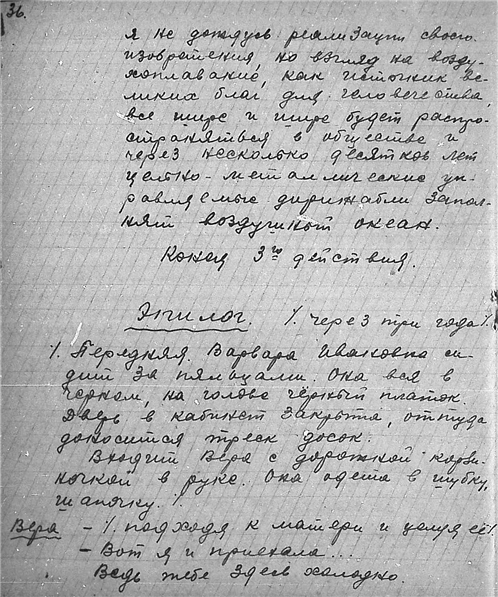 36.
я не дождусь реализации своего
изобретения, но взгляд на возду-
хоплавание, как источник ве-
ликих благ для человечества,
все шире и шире будет распро-
страняться в обществе и
через несколько десятков лет
цельно-металлические уп-
равляемые дирижабли запол-
нят воздушный океан.
Конец 3го действия.
Эпилог. /. через три года /.
/. Передняя. Варвара Ивановна си-
дит за пяльцами. Она вся в
черном, на голове чёрный платок.
Дверь в кабинет закрыта, оттуда
доносится треск досок.
Входит Вера с дорожной корзи-
ночкой в руке. Она одета в шубку,
шапочку. /.
Вера - /. подходя к матери и целуя её /.
- Вот я и приехала...
Ведь тебе здесь холодно.